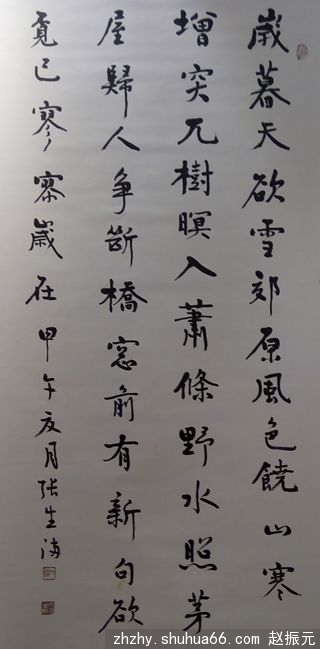 歲暮天欲雪郊原風色饒山寒
增突兀樹暝入蕭條野水照茅
屋歸人爭斷橋窓前有新句欲
覓已寥寥歲在甲午夏月張生海
zhzhy.shuhua66.com 赵振元